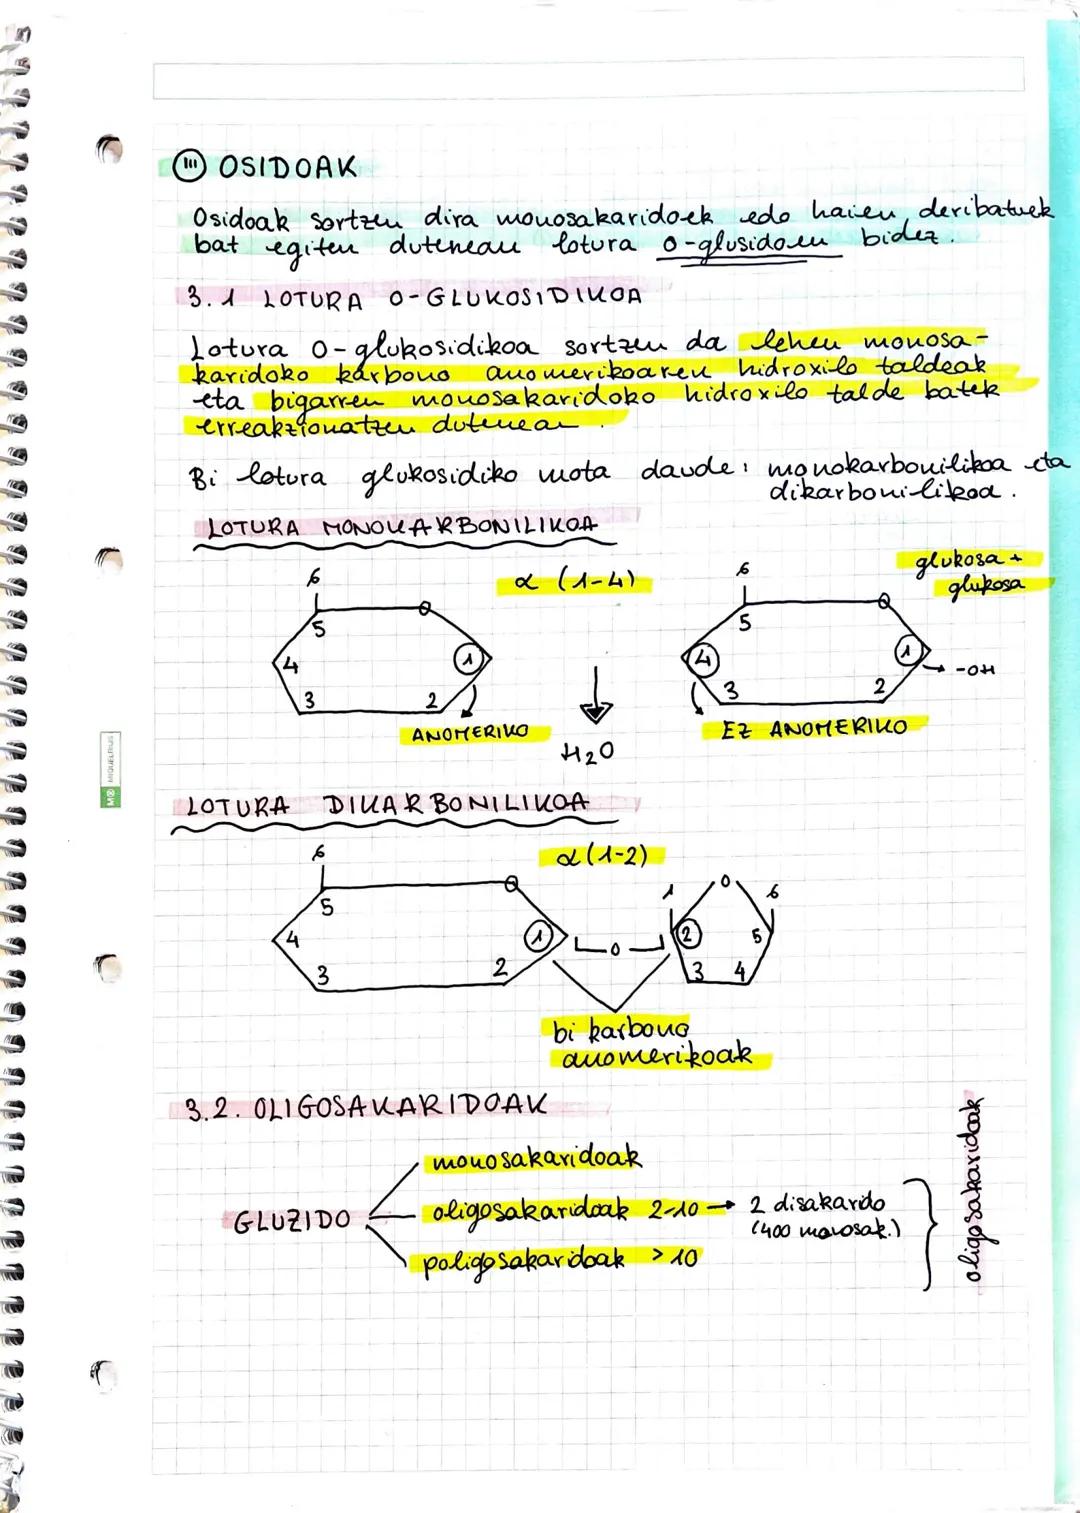 III OSIDOAK
Osidoak sortzen dira monosakaridoek edo haien deribatuek
bat egiten dutenean lotura o-glusidoen bidez.
3.1 LOTURA O-GLUKOSIDIKOA
Lotura o-glukosidikoa sortzen da lehen monosa-
karidoko karbono anomerikoaren hidroxilo taldeak
eta bigarren monosakaridoko hidroxilo talde batek
erreakzionatzen dutenean.
Bi lotura glukosidiko mota daude: monokarbonilikoa eta
dikarbonilikoa.
LOTURA MONOKARBONILIKOA
α (1-4)
glukosa +
glukosa
6
5
O
4
1
3
2
ANOMERIKO
H2O
6
5
O
4
1
-OH
3
2
EZ ANOMERIKO
LOTURA DIKARBONILIKOA
α(1-2)
6
5
O
4
1
3
2
O
1
O
6
2
5
3
4
bi karbono
anomerikoak
3.2. OLIGOSAKARIDOAK
GLUZIDO
monosakaridoak
oligosakaridoak 2-10 → 2 disakarido
(400 monosak.)
poligosakaridoak > 10
oligosakaridoak
MR MIQUELRIUS